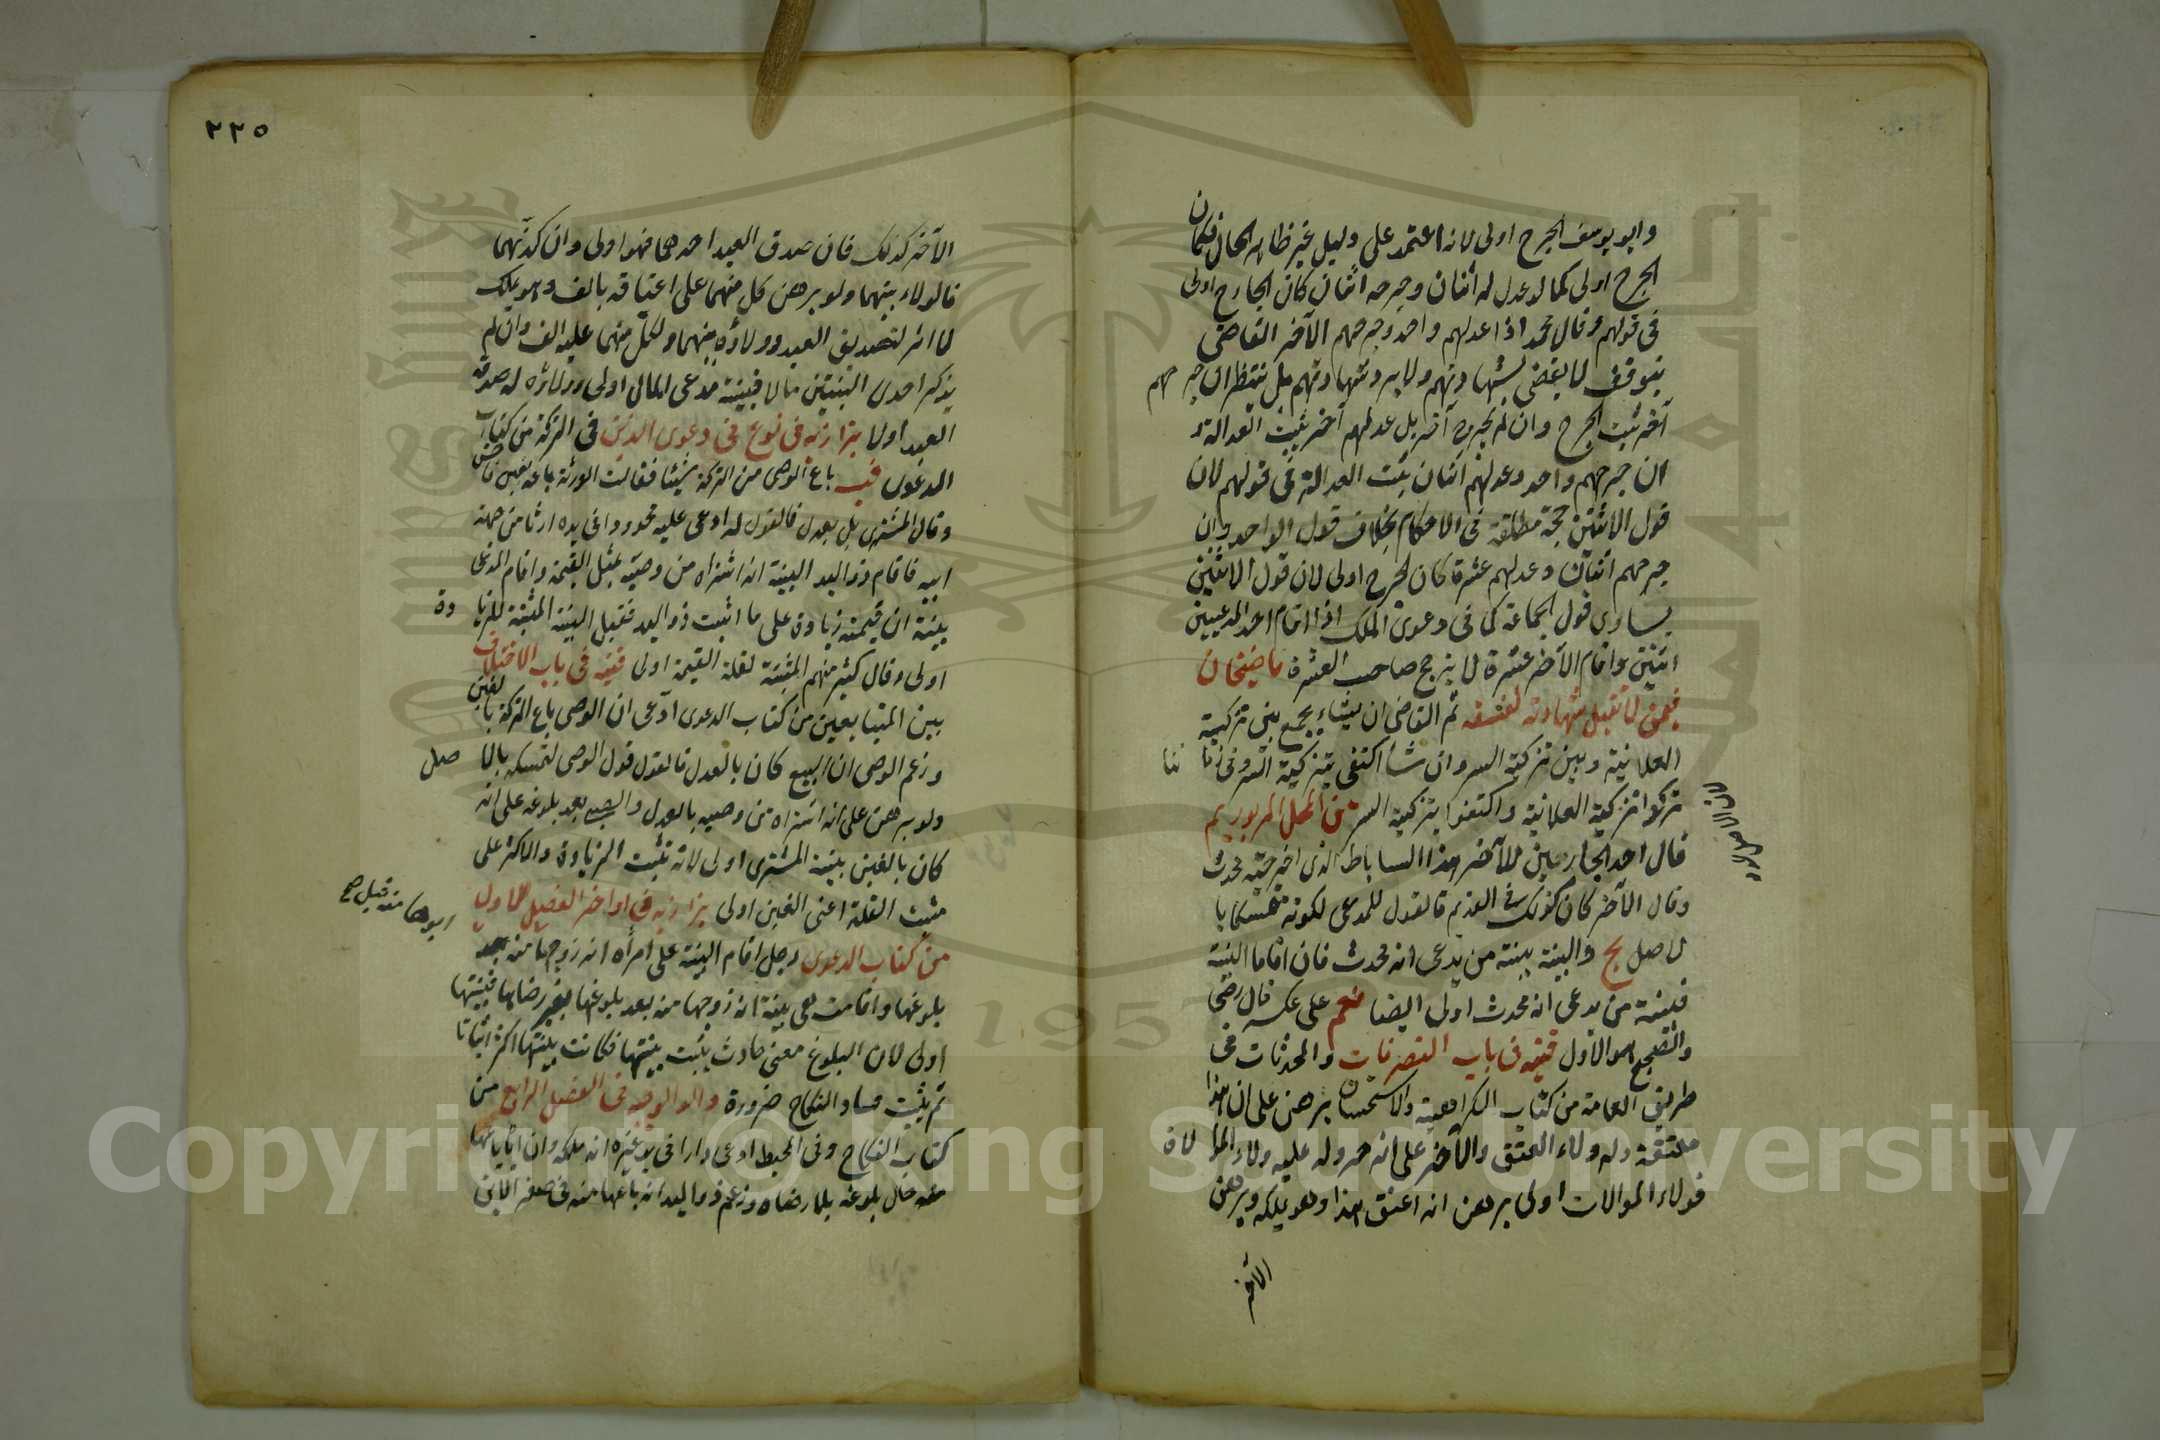 وابو يوسف الجرح اولى لانه اعتمد على دليل غير ظاهر الحال فكان
الجرح اولى كما لو عدل له اثنان وجرحه اثنان كان الجارح اولى
فى قولهم وقال محمد اذا عدلهم واحد وجرحهم الآخر القاضى
يتوقف لا يقضى بشهادتهم ولا يرد شهادتهم بل ينتظر ان جرحهم
آخر ثبت الجرح وان لم يجرح آخر بل عدلهم آخر يثبت العدالة و
ان جرحهم واحد وعدلهم اثنان ثبت العدالة فى قولهم لان
قول الاثنين حجة مطلقة فى الاحكام بخلاف قول الواحد وان
جرحهم اثنان وعدلهم عشرة كان الجرح اولى لان قول الاثنين
يساوى قول الجماعة كما فى دعوى الملك اذا اقام احد المدعيين
اثنين واقام الآخر عشرة لا يترجح صاحب العشرة قاضيخان
فيمن لا تقبل شهادته لفسقه ثم القاضى ان يشاء يجمع بين تزكية
العلانية وبين تزكية السر وان شا اكتفى بتزكية السر وفى زماننا
تركوا تزكية العلانية واكتفوا بتزكية السر من المحل المزبور
قال احد الجارين للآخر هذا الساباط الذى اخرجته محدث
وقال الآخر كان كذلك فى القديم فالقول للمدعى لكونه متمسكا با
لاصل بح والبينة بينة من يدعى انه محدث فان اقاما البينة
فبينة من يدعى انه محدث اولى ايضا على عكسه قال رضى
والصحيح هو الاول قنيه فى باب التصرفات والمحدثات فى
طريق العامة من كتاب الكراهية والاستحسان برهن على ان هذا
معتقه وله ولاء العتق والآخر على انه حر وله عليه ولاء الموالاة
فولاء الموالات اولى برهن انه اعتق هذا وهو يملكه وبرهن
الآخر
٢٢٥
الآخر كذلك فان صدق العبد احدهما فهو اولى وان كذبهما
فالولاء بينهما ولو برهن كل منهما على اعتاقه بالف وهو يملك
لا اثر لتصديق العبد وولاؤه بينهما ولكل منهما عليه الف وان لم
يذكر احدى البينتين مالا فبينة مدعى المال اولى وولاؤه له صدقه
العبد اولا بزازيه فى نوع فى دعوى الدين فى التركة من كتاب
الدعوى قب باع الوصى من التركة شيئا فقالت الورثة باعه بغبن فاحش
وقال المشترى بل بعدل فالقول له ادعى عليه محدودا فى يده ارثا من جهة
ابيه فاقام ذو اليد البينة انه اشتراه من وصيه بمثل القيمة واقام المدعى
بينة ان قيمته زيادة على ما اثبت ذو اليد فتقبل البينة المثبتة للزيادة
اولى وقال كثير منهم المثبتة لقلة القيمة اولى قنيه فى باب الاختلاف
بين المتبايعين من كتاب الدعوى ادعى ان الوصى باع التركة بالغبن
وزعم الوصى ان البيع كان بالعدل فالقول قول الوصى لتمسكه بالاصل
ولو برهن على انه اشتراه من وصيه بالعدل والصبى بعد بلوغه على انه
كان بالغبن بينة المشترى اولى لانه تثبت الزيادة والاكثر على
مثبت القلة اعنى الغبن اولى بزازيه فى اواخر الفصل الاول
من كتاب الدعوى رجل اقام البينة على امرأه انه زوجها منه ابوها قبل صح
بلوغها واقامت هى بينة انه زوجها منه بعد بلوغها بغير رضاها فبينتها
اولى لان البلوغ معنى حادث يثبت بينتها فكانت بينتها اكثر اثباتا
ثم يثبت فساد النكاح ضرورة والوالوجيه فى الفصل الرابع من
كتاب النكاح وفى المحيط ادعى دارا فى يد غيره انه ملكه وان اباه باعها
منه حال بلوغه بلا رضاه وزعم ذو اليد انه باعها منه فى صغر الابن
Copyright © King Saud University
1957